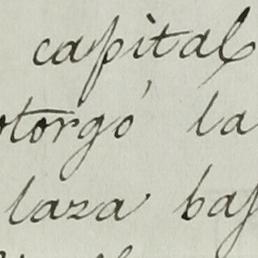 capital
otorgó la
laza baj